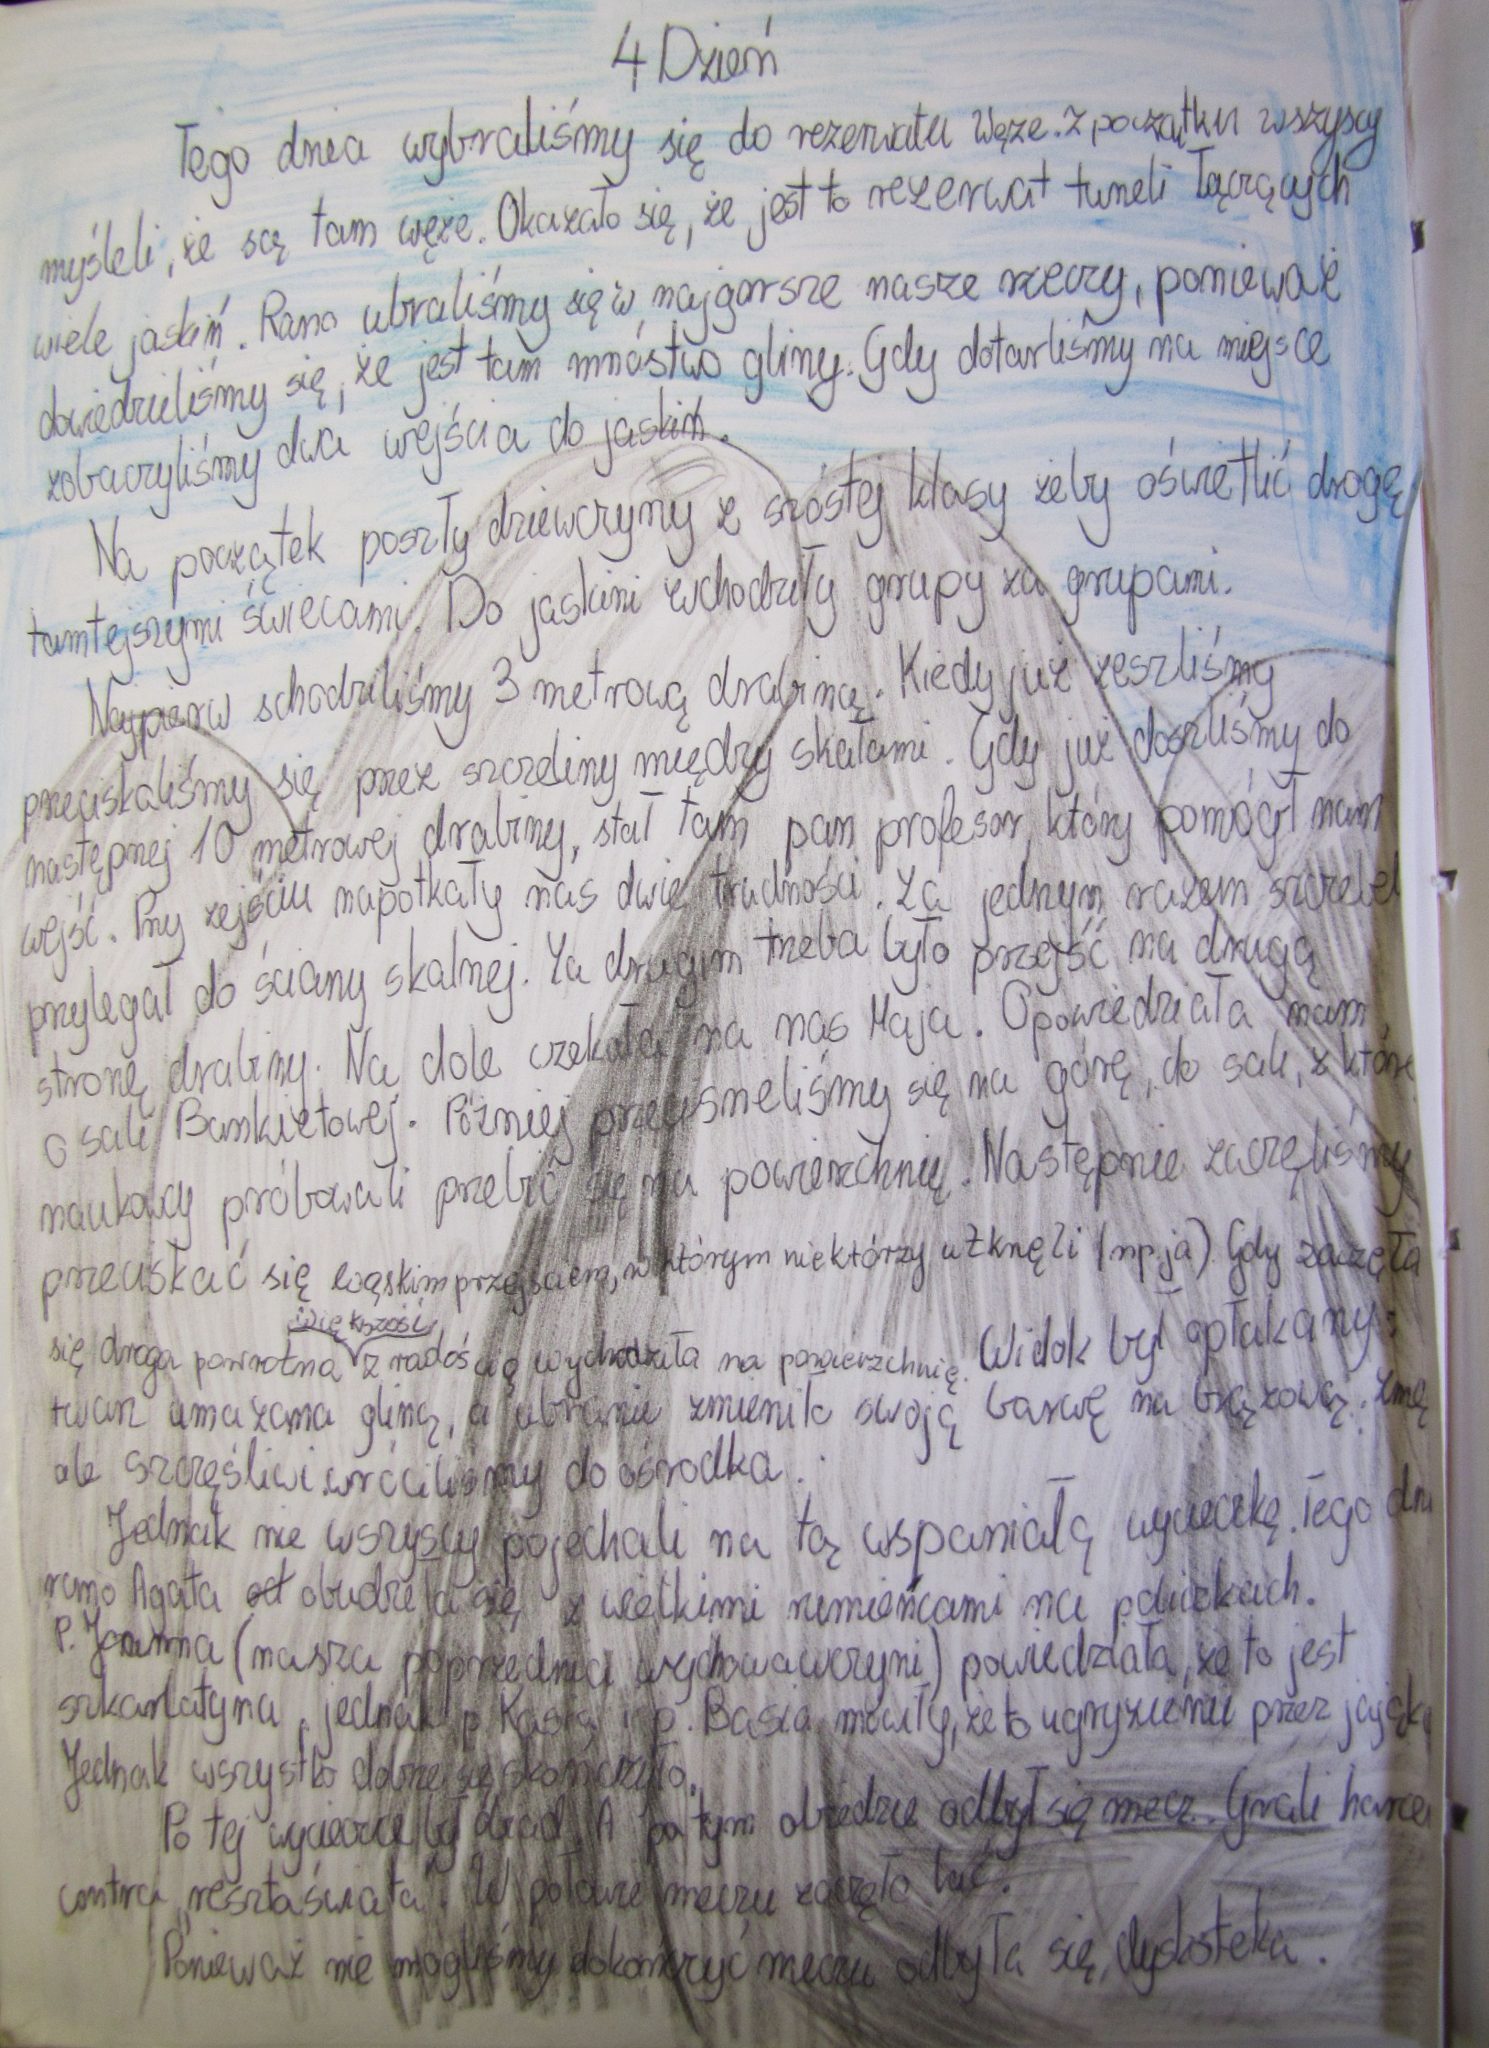 4 Dzień
Tego dnia wybraliśmy się do rezerwatu Węże. Z początku wszyscy
myśleli, że są tam węże. Okazało się, że jest to rezerwat tuneli łączących
wiele jaskiń. Rano ubraliśmy się w najgorsze nasze rzeczy, ponieważ
dowiedzieliśmy się, że jest tam mnóstwo gliny. Gdy dotarliśmy na miejsce
zobaczyliśmy dwa wejścia do jaskiń.
Na początek poszły dziewczyny z szóstej klasy żeby oświetlić drogę
tamtejszymi świecami. Do jaskini wchodziły grupy za grupami.
Najpierw schodziliśmy 3 metrową drabiną. Kiedy już zeszliśmy
przeciskaliśmy się przez szczeliny między skałami. Gdy już doszliśmy do
następnej 10 metrowej drabiny, stał tam pan profesor, który pomógł nam
wejść. Przy zejściu napotkały nas dwie trudności. Za jednym razem szczebel
przylegał do ściany skalnej. Za drugim trzeba było przejść na drugą
stronę drabiny. Na dole czekała na nas Maja. Opowiedziała nam
o sali Bankietowej. Później przecisneliśmy się na górę, do sali, z które
naukowcy próbowali przebić się na powierzchnię. Następnie zaczęliśmy
przeciskać się wąskim przejściem, w którym niektórzy utknęli (np. ja) Gdy zaczęła
się droga powrotna większość z radością wychodziła na powierzchnię. Widok był opłakany:
twarz umazana gliną, a ubranie zmieniło swoją barwę na brązową. Zmę
ale szczęśliwi wróciliśmy do ośrodka.
Jednak nie wszyscy pojechali na tą wspaniałą wycieczkę. Tego dni
rano Agata obudziła się z wielkimi rumieńcami na policzkach.
P. Joanna (nasza poprzednia wychowawczyni) powiedziała, że to jest
szkarlatyna, jednak p. Kasia i p. Basia mówiły, że to ugryzienie przez
Jednak wszystko dobrze się skończyło.
Po tej wycieczce był obiad. A po tym obiedzie odbył się mecz. Grali harce
contra "reszta świata". W połowie meczu zaczęło lać.
Ponieważ nie mogliśmy dokończyć meczu odbyła się dyskoteka.